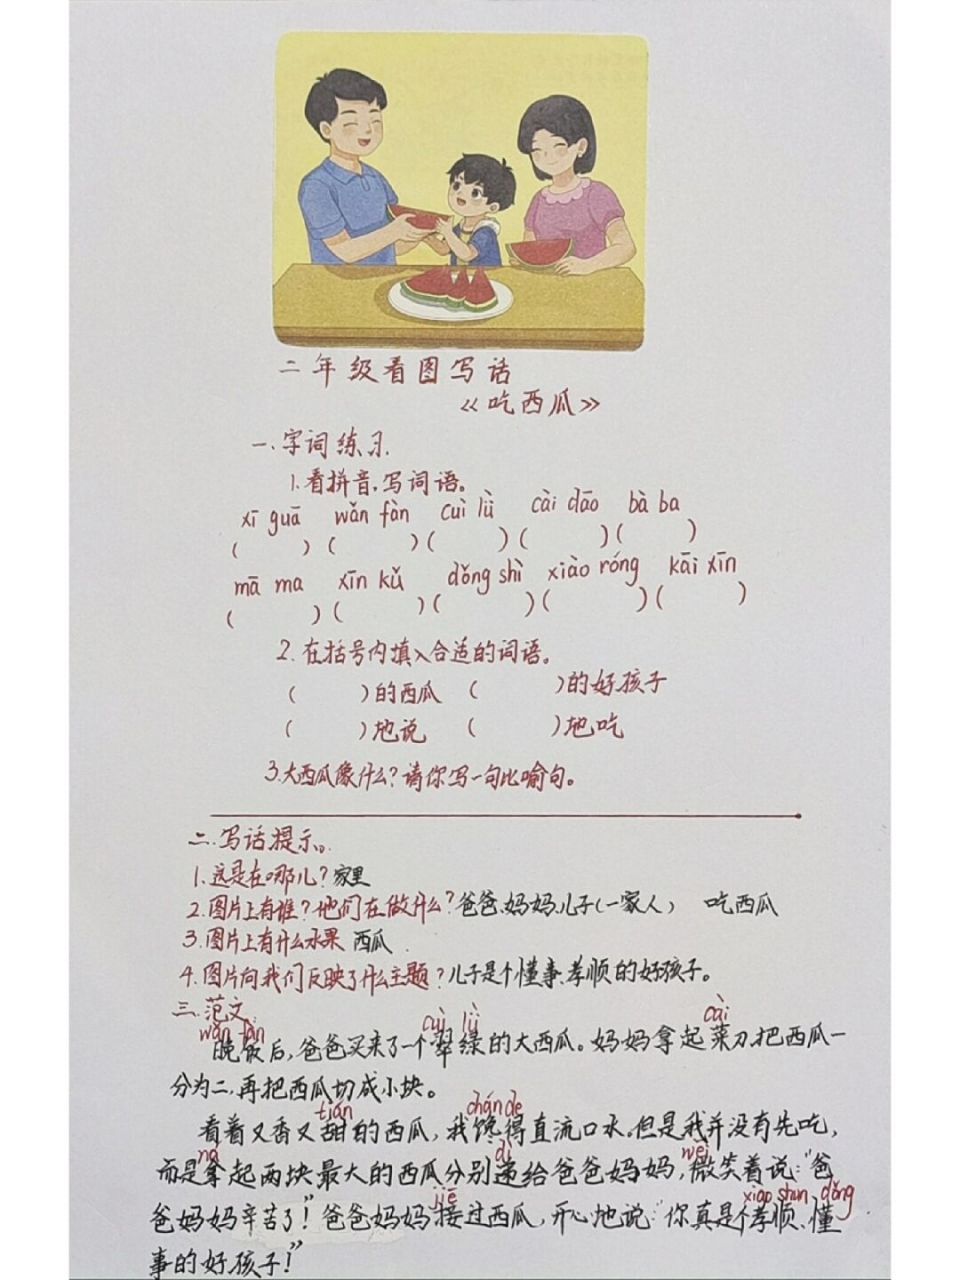 二年级看图写话
《吃西瓜》
一.字词练习
1.看拼音,写词语。
xī guā wǎn fàn cuì lǜ cài dāo bà ba
( ) ( ) ( ) ( ) ( )
mā ma xīn kǔ dǒng shì xiào róng kāi xīn
( ) ( ) ( ) ( ) ( )
2.在括号内填入合适的词语。
( )的西瓜 ( )的好孩子
( )地说 ( )地吃
3.大西瓜像什么?请你写一句比喻句。
二.写话提示。
1.这是在哪儿?家里
2.图片上有谁?他们在做什么?爸爸、妈妈、儿子(一家人) 吃西瓜
3.图片上有什么水果 西瓜
4.图片向我们反映了什么主题?儿子是个懂事、孝顺的好孩子。
三.范文:
wǎn fàn cuì lǜ cài
晚饭后,爸爸买来了一个翠绿的大西瓜。妈妈拿起菜刀,把西瓜一
分为二,再把西瓜切成小块。
tián chán de
看着又香又甜的西瓜,我馋得直流口水。但是我并没有先吃,
ná dì wēi
而是拿起两块最大的西瓜分别递给爸爸妈妈,微笑着说:"爸
jiē xiào shùn dǒng
爸妈妈辛苦了!"爸爸妈妈接过西瓜,开心地说:"你真是个孝顺、懂
事的好孩子!"